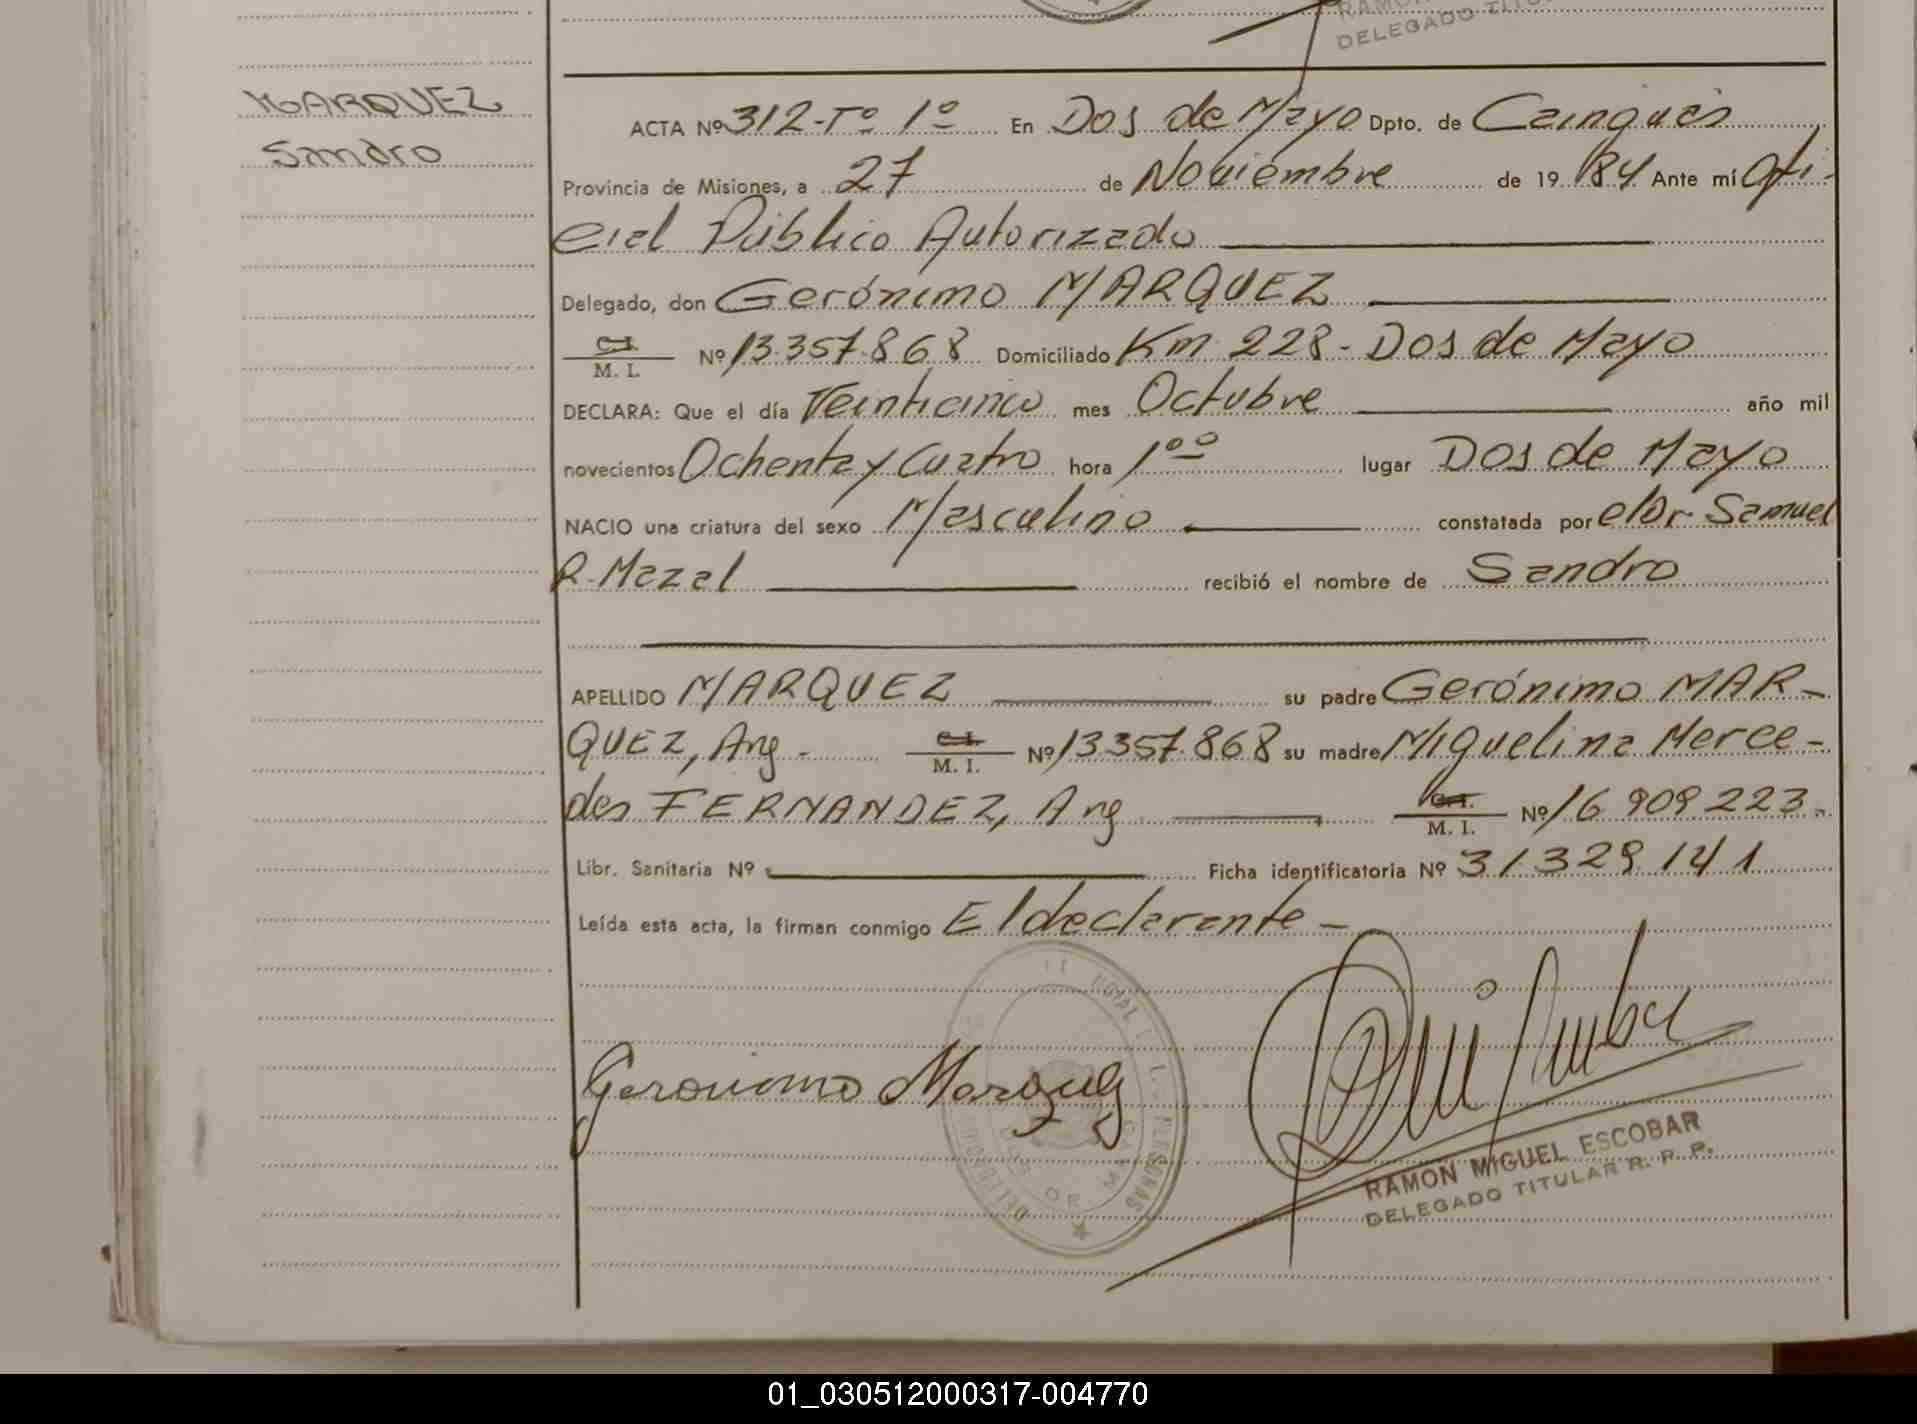 RAMON
DELEGADO TITUL
MARQUEZ
Sandro
ACTA Nº 312-Tº 1º En Dos de Mayo Dpto. de Cainguás
Provincia de Misiones, a 27 de Noviembre de 19 84 Ante mí Ofi-
cial Público Autorizado
Delegado, don Gerónimo MARQUEZ
C.I. M. I. Nº 13.357.868 Domiciliado Km 228-Dos de Mayo
DECLARA: Que el día Veinticinco mes Octubre año mil
novecientos Ochenta y Cuatro hora 1ºº lugar Dos de Mayo
NACIO una criatura del sexo Masculino constatada por el Dr. Samuel
R. Mazal recibió el nombre de Sandro
APELLIDO MARQUEZ su padre Gerónimo MAR-
QUEZ, Arg. C.I. M. I. Nº 13.357.868 su madre Miguelina Merce-
des FERNANDEZ, Arg C.I. M. I. Nº 16.909.223.
Libr. Sanitaria Nº Ficha identificatoria Nº 31.329.141
Leída esta acta, la firman conmigo El declarante-
Geronimo Marquez
PERSONAS
DOS DE MAYO
RAMON MIGUEL ESCOBAR
DELEGADO TITULAR R. P. P.
01_030512000317-004770